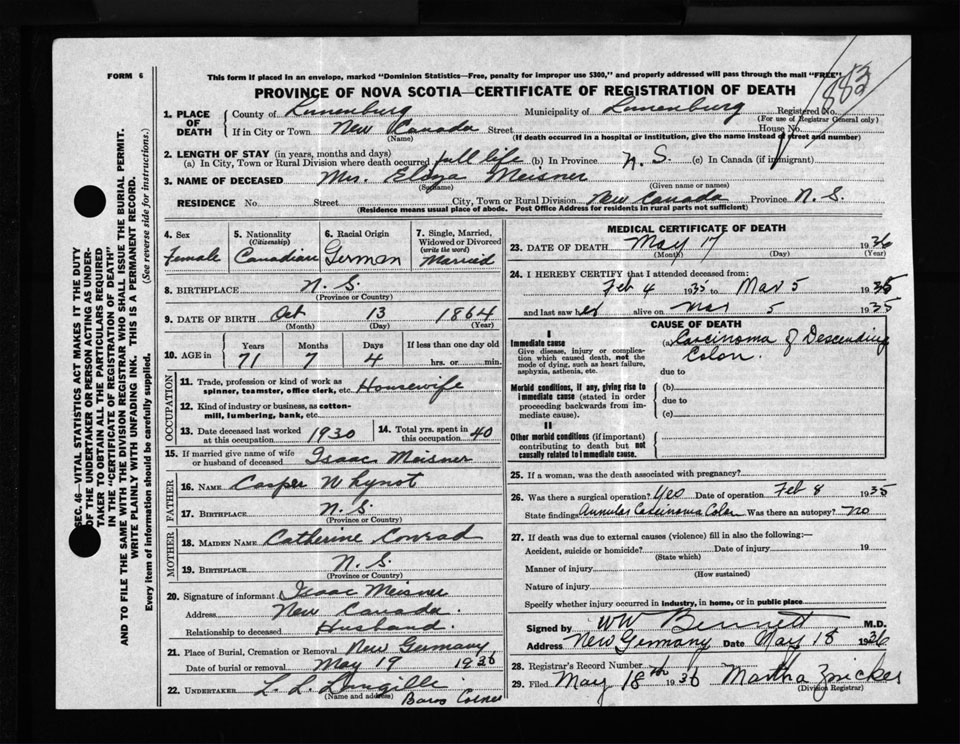 FORM 6
This form if placed in an envelope, marked "Dominion Statistics—Free, penalty for improper use $300," and properly addressed will pass through the mail "FREE"
PROVINCE OF NOVA SCOTIA—CERTIFICATE OF REGISTRATION OF DEATH
883
1. PLACE OF DEATH
County of Lunenburg Municipality of Lunenburg Registered No.
(For use of Registrar General only)
If in City or Town New Canada Street House No.
(Name) (If death occurred in a hospital or institution, give the name instead of street and number)
2. LENGTH OF STAY (in years, months and days)
(a) In City, Town or Rural Division where death occurred full life (b) In Province N. S. (c) In Canada (if immigrant)
3. NAME OF DECEASED Mrs. Meisner
(Surname) (Given name or names)
RESIDENCE No. Street City, Town or Rural Division New Canada Province N. S.
(Residence means usual place of abode. Post Office Address for residents in rural parts not sufficient)
4. Sex Female
5. Nationality (Citizenship) Canadian
6. Racial Origin German
7. Single, Married, Widowed or Divorced (write the word) Married
8. BIRTHPLACE N. S.
(Province or Country)
9. DATE OF BIRTH Oct 13 1864
(Month) (Day) (Year)
10. AGE in Years Months Days If less than one day old
71 7 4 hrs. or min.
OCCUPATION
11. Trade, profession or kind of work as spinner, teamster, office clerk, etc. Housewife
12. Kind of industry or business, as cotton-mill, lumbering, bank, etc.
13. Date deceased last worked at this occupation 1930
14. Total yrs. spent in this occupation 40
15. If married give name of wife or husband of deceased Isaac Meisner
FATHER
16. NAME Casper Whynot
17. BIRTHPLACE N. S.
(Province or Country)
MOTHER
18. MAIDEN NAME Catherine Conrad
19. BIRTHPLACE N. S.
(Province or Country)
20. Signature of informant Isaac Meisner
Address New Canada
Relationship to deceased Husband.
21. Place of Burial, Cremation or Removal New Germany
Date of burial or removal May 19 1936
22. UNDERTAKER L. L.
(Name and address)
MEDICAL CERTIFICATE OF DEATH
23. DATE OF DEATH May 17 1936
(Month) (Day) (Year)
24. I HEREBY CERTIFY that I attended deceased from:
Feb 4 1935 to Mar 5 1935
and last saw her alive on Mar 5 1935
CAUSE OF DEATH
I
Immediate cause
Give disease, injury or complication which caused death, not the mode of dying, such as heart failure, asphyxia, asthenia, etc.
(a) Carcinoma of Descending
Colon.
due to
Morbid conditions, if any, giving rise to immediate cause (stated in order proceeding backwards from immediate cause).
(b)
due to
(c)
II
Other morbid conditions (if important) contributing to death but not causally related to immediate cause.
25. If a woman, was the death associated with pregnancy?
26. Was there a surgical operation? Yes Date of operation Feb 8 1935
State findings Annular Carcinoma Colon Was there an autopsy? No
27. If death was due to external causes (violence) fill in also the following:—
Accident, suicide or homicide? Date of injury 19
(State which)
Manner of injury
(How sustained)
Nature of injury
Specify whether injury occurred in industry, in home, or in public place
Signed by WW Bennett M.D.
Address New Germany Date May 18 1936
28. Registrar's Record Number
29. Filed May 18th 1936 Martha Zwicker
(Division Registrar)
SEC. 46—VITAL STATISTICS ACT MAKES IT THE DUTY
OF THE UNDERTAKER OR PERSON ACTING AS UNDER-
TAKER TO OBTAIN ALL THE PARTICULARS REQUIRED
IN THE "CERTIFICATE OF REGISTRATION OF DEATH"
AND TO FILE THE SAME WITH THE DIVISION REGISTRAR WHO SHALL ISSUE THE BURIAL PERMIT.
WRITE PLAINLY WITH UNFADING INK. THIS IS A PERMANENT RECORD.
Every item of information should be carefully supplied. (See reverse side for instructions.)